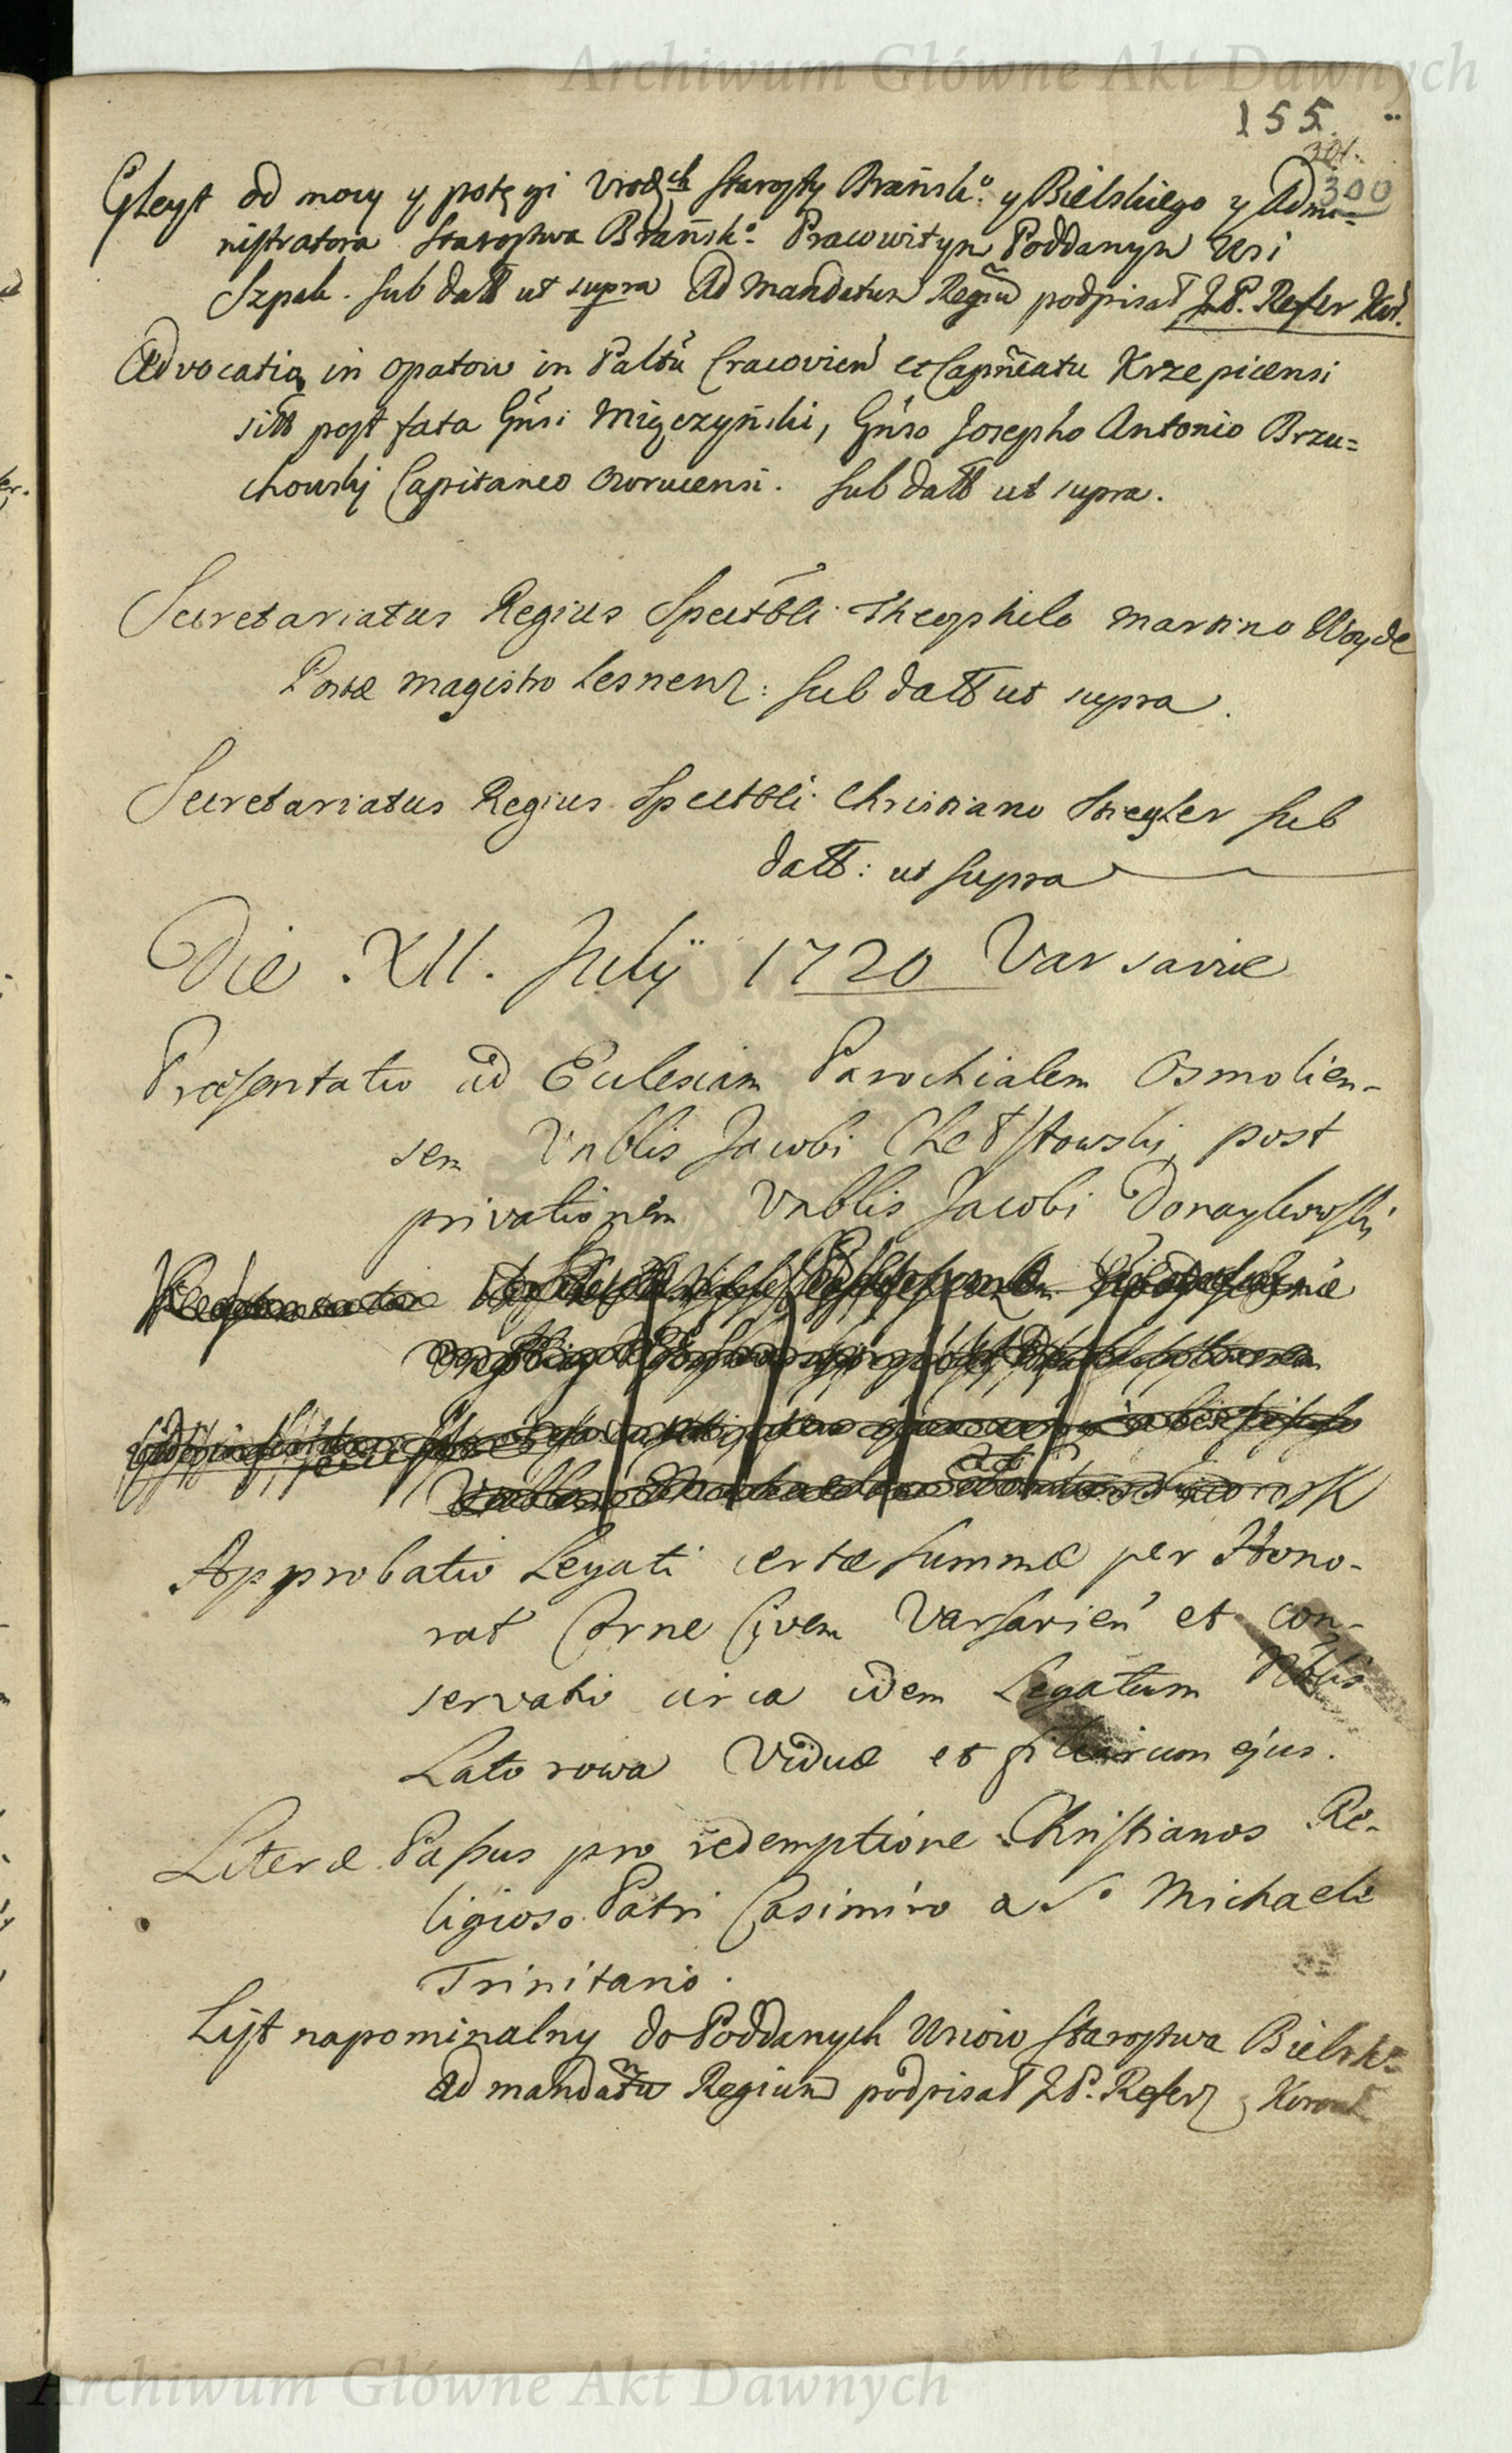 Archiwum Główne Akt Dawnych
155.
301.
300
Gleyt od mocy y potęgi Urodz: Starosty Brańsk: y Bielskiego y Admi=
nistratora Starostwa Brańsk: Pracowitym Poddanym Wsi
Szpak. Sub datt ut supra Ad Mandatum Regiū podpisał J.P. Refer Kor.
Advocatia in Opatow in Paltū Cracovień et Capñeatu Krzepicensi
sitt post fata Gñsi Mięczyński, Gñso Josepho Antonio Brzu=
chowskj Capitaneo Owrucensi. Sub datt ut supra.
Secretariatus Regius Spectbli Theophilo Martino Woyde
Postæ Magistro Lesnenz: Sub datt ut supra.
Secretariatus Regius Spectbli Christiano Stiegler Sub
datt: ut Supra
Die .XII. Julÿ 1720 Varsaviæ
Præsentatio ad Eclesiam Parochialem Osmolien-
sem Vnblis Jacobi post
privationem Vnblis Jacobi
Approbatio Legati certæ Summæ per Hono-
rat Civem Varsavień et con-
servatio circa idem Legatum Nblis
Latorowa Viduæ et filiarum ejus.
Literæ Passus pro redemptione Christianos Re-
ligioso Patri Casimiro a S° Michaele
Trinitario.
List napominalny do Poddanych Wsiow Starostwa Bielsk:
Ad mandatū Regium podpisał J P. Referz Koron
Archiwum Główne Akt Dawnych